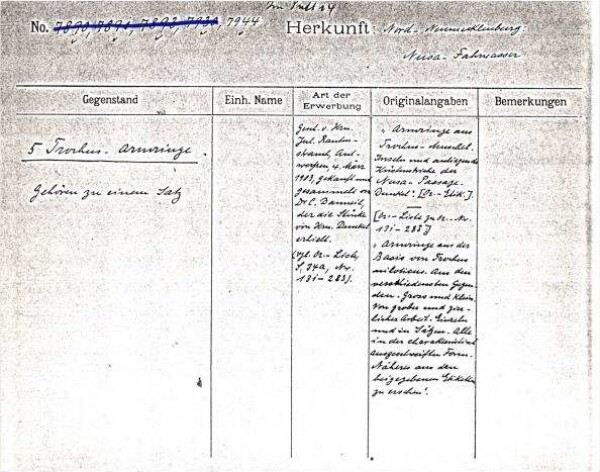 im Pult 24
No. 7890, 7891, 7892, 7930, 7944
Herkunft: Nord-Neumecklenburg.
Nusa-Fahrwasser
Gegenstand
Einh. Name
Art der
Erwerbung
Originalangaben
Bemerkungen
5 Trochus-Armringe.
Gehören zu einem Satz
Gesch. v. Hrn.
Jul. Rauten-
strauch, Ant-
werpen 4. März
1903, gekauft und
gesammelt v.
Dr. C. Danneil,
der die Stücke
von Hrn. Dunkel
erhielt.
(vgl. Or-Liste,
S. 34a, Nr.
131-283).
"Armringe aus
Trochus-Muschel.
Inseln und anliegende
Küstenstriche der
Nusa-Passage.
Dunkel". [Or-Etik.].
[Or-Liste zu Or-Nr.
131-283]
"Armringe aus der
Basis von Trochus
niloticus. Aus den
verschiedensten Gegen-
den. Gross und klein.
Von grober und zier-
licher Arbeit. Einzeln
und in Sätzen. Alle
in der charakteristisch
ausgeschweiften Form.
Näheres aus den
beigegebenen Etiketten
zu ersehen".